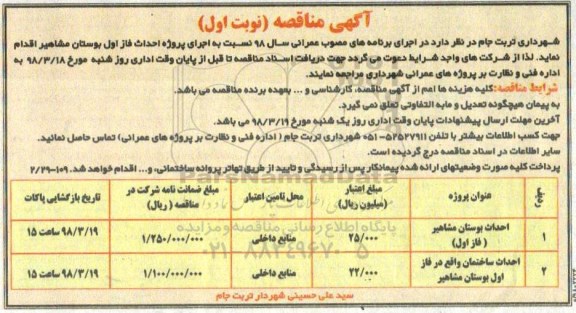 آگهی مناقصه (نوبت اول)
شهرداری تربت جام در نظر دارد در اجرای برنامه های مصوب عمرانی سال ۹۸ نسبت به اجرای پروژه احداث فاز اول بوستان مشاهیر اقدام
نماید. لذا از شرکت های واجد شرایط دعوت می گردد جهت دریافت اسناد مناقصه تا قبل از پایان وقت اداری روز شنبه مورخ ۹۸/۳/۱۸ به
اداره فنی و نظارت بر پروژه های عمرانی شهرداری مراجعه نمایند.
شرایط مناقصه: کلیه هزینه ها اعم از آگهی مناقصه، کارشناسی و ... بعهده برنده مناقصه می باشد.
به پیمان هیچگونه تعدیل و مابه التفاوتی تعلق نمی گیرد.
آخرین مهلت ارسال پیشنهادات پایان وقت اداری روز یک شنبه مورخ ۹۸/۳/۱۹ می باشد.
جهت کسب اطلاعات بیشتر با تلفن ۵۲۵۲۷۹۱۱-۰۵۱ شهرداری تربت جام ( اداره فنی و نظارت بر پروژه های عمرانی) تماس حاصل نمائید.
سایر اطلاعات در اسناد مناقصه درج گردیده است.
پرداخت کلیه صورت وضعیتهای ارائه شده پیمانکار پس از رسیدگی و تایید از طریق تهاتر پروانه ساختمانی، و... اقدام خواهد شد. ۱۰۹-۲/۲۹
ردیف عنوان پروژه مبلغ اعتبار (میلیون ریال) محل تامین اعتبار مبلغ ضمانت نامه شرکت در مناقصه ( ریال) تاریخ بازگشایی پاکات
۱ احداث بوستان مشاهیر ( فاز اول) ۲۵/۰۰۰ منابع داخلی ۱/۲۵۰/۰۰۰/۰۰۰ ۹۸/۳/۱۹ ساعت ۱۵
۲ احداث ساختمان واقع در فاز اول بوستان مشاهیر ۲۲/۰۰۰ منابع داخلی ۱/۱۰۰/۰۰۰/۰۰۰ ۹۸/۳/۱۹ ساعت ۱۵
پایگاه اطلاع رسانی مناقصه و مزایده
۰۲۱-۸۸۳۴۹۶۷۰-۵
سید علی حسینی شهردار تربت جام